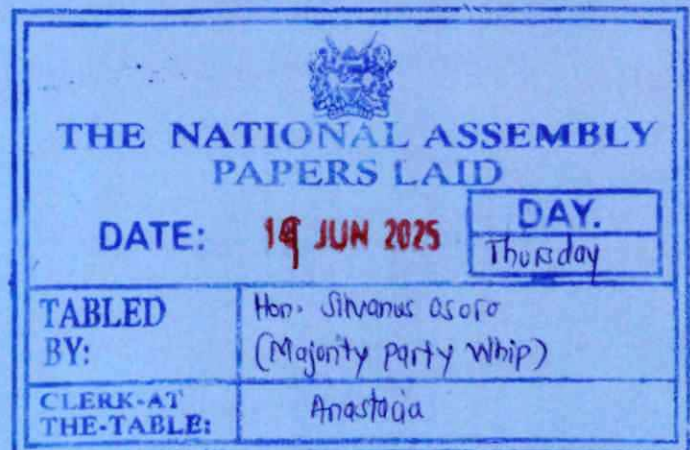 THE NATIONAL ASSEMBLY
PAPERS LAID
DATE: 19 JUN 2025
DAY.
Thursday
TABLED BY:
Hon. Silvanus Osoro
(Majority Party Whip)
CLERK-AT THE-TABLE:
Anastacia